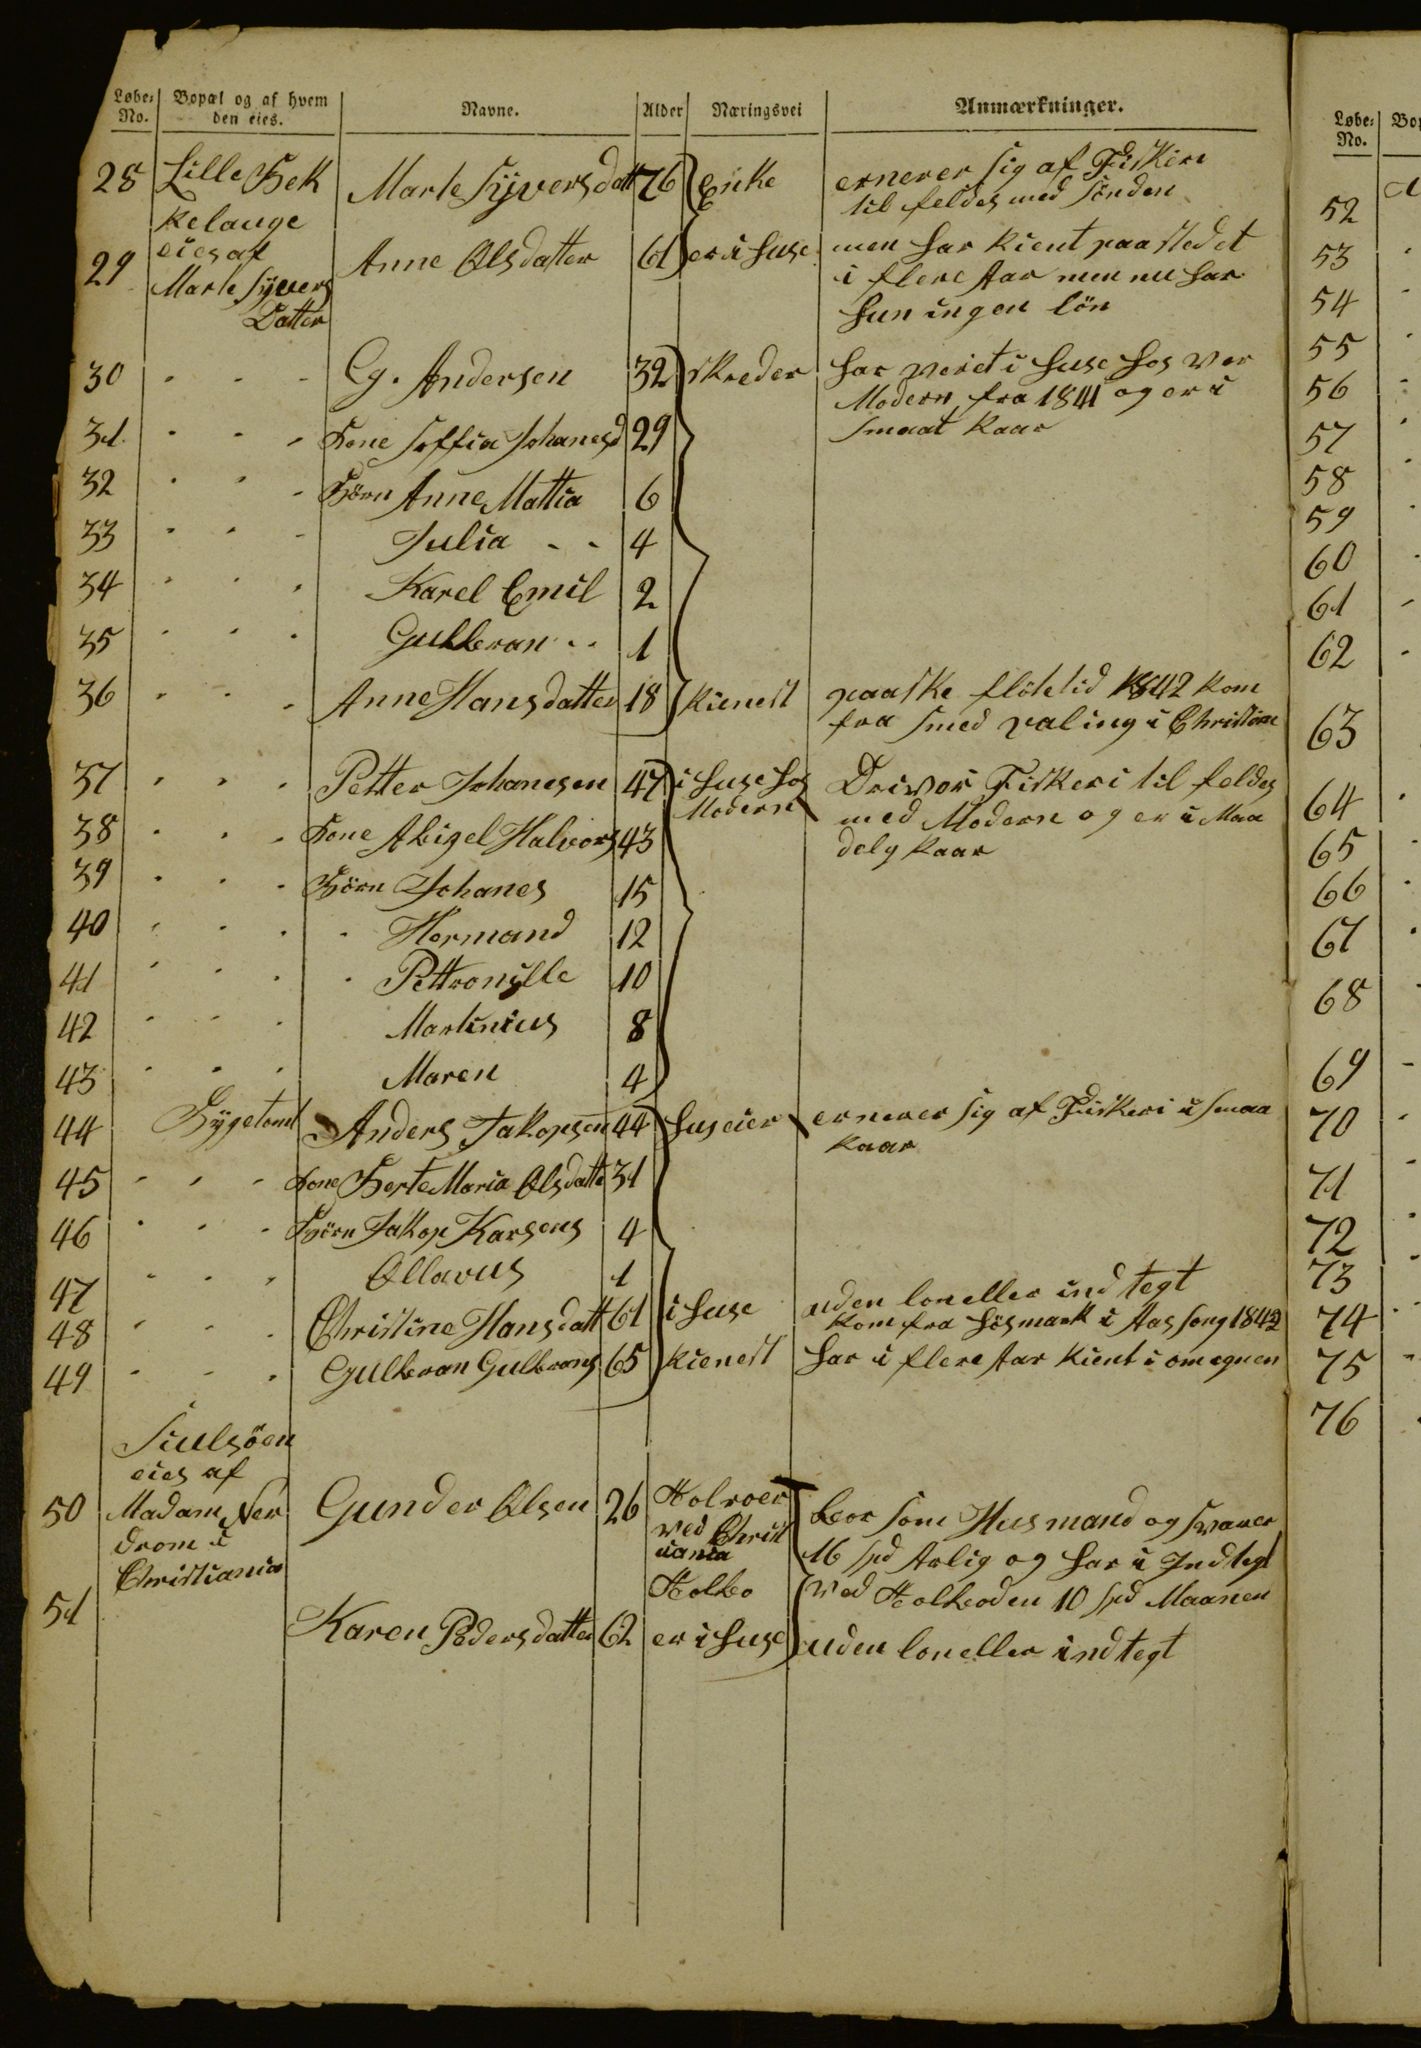 Løbe-No. Bopæl og af hvem den eies. Navne. Alder Næringsvei Anmærkninger.
28 Lille Bek Marte Syversdatt 76 Enke ernerer sig af Fiskere
kelauge til feldes med sönden
29 eies af Anne Olsdatter 61 er i huse men har tient paa stedet
Marte Syvers i flere Aar men nu har
Datter hun ingen lön
30 - - - G. Andersen 32 skreder har veret i huse hos ver
Modern fra 1841 og er i
31 - - - Kone Soffia Johanesd 29 smaat kaar
32 - - - Börn Anne Mattia 6
33 - - - Julia - - 4
34 - - - Karel Emil 2
35 - - - Gulbran - - 1
36 - - - Anne Hansdatter 18 tienest paaske flötetid 1842 kom
fra smed valing i Christiane
37 - - - Petter Johanesen 47 i huse hos Modern Drivor Fiskeri til feldes
38 - - - Kone Abigel Halvors 43 med Modern og er i Maa
39 - - - Börn Johanes 15 delg kaar
40 - - - - Hermand 12
41 - - - - Pettronille 10
42 - - - Martinius 8
43 - - - Maren 4
44 Bygetomt Anders Jakopsen 44 huseier ernerer sig af Fiskeri i smaa
kaar
45 - - - Kone Berte Maria Olsdatte 31
46 - - - Börn Jakop Karsens 4
47 - - - Ollavus 1
48 - - - Christine Hansdatt 61 i huse uden lon eller indtegt
kom fra hösmark i Aas song 1842
49 - - - Gulbran Gulbrans 65 tienest har i flere Aar tient i omegnen
Siulsöen
eies af
50 Madam Ner Gunder Olsen 26 Tolroer bor som Husmand og svarer
drom i ved Christ 16 spd Arlig og har i Indtegt
Christiania iania
Tolbo ved Tolboden 10 spd Maanen
51 Karen Pedersdatter 62 er i huse uden lon eller indtegt
Løbe-No.
52
53
54
55
56
57
58
59
60
61
62
63
64
65
66
67
68
69
70
71
72
73
74
75
76